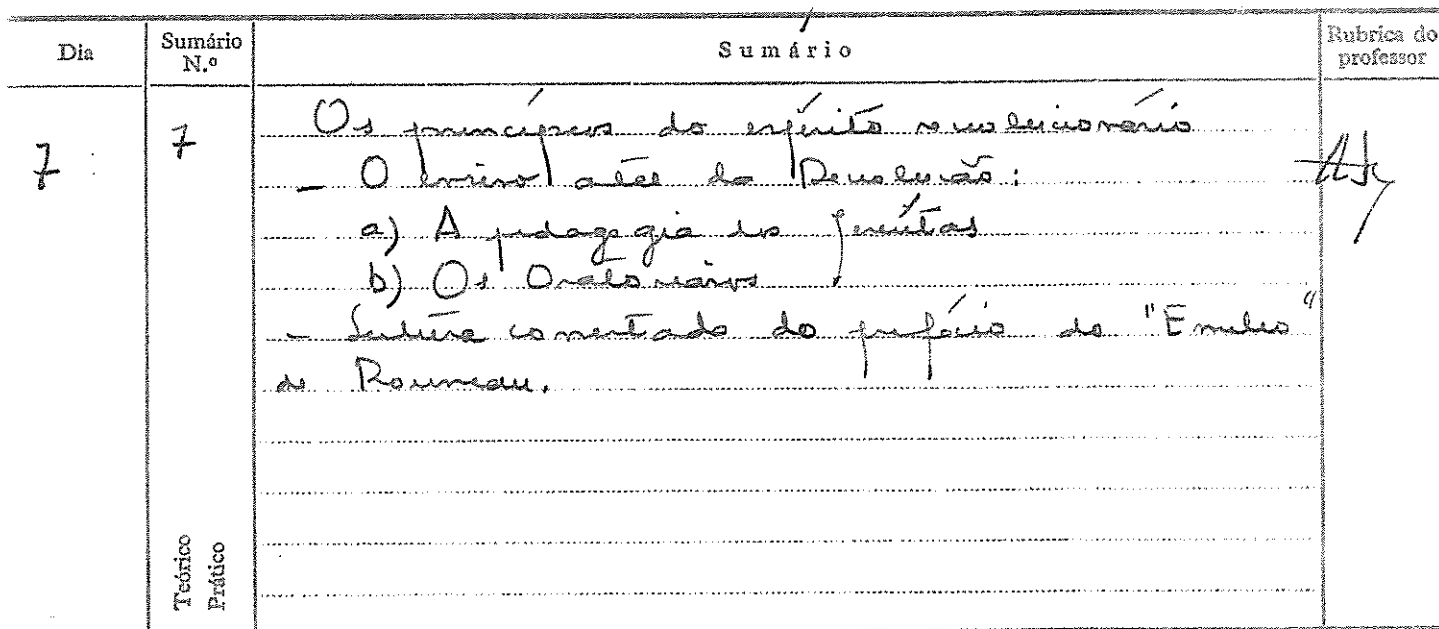 Dia
Sumário N.º
Sumário
Rubrica do professor
7
7
Os princípios do espírito revolucionário
- O ensino até da Revolução:
a) A pedagogia dos Jesuítas
b) Os Oratorianos
- Leitura comentada do prefácio do "Emílio"
de Rousseau.
Teórico
Prático